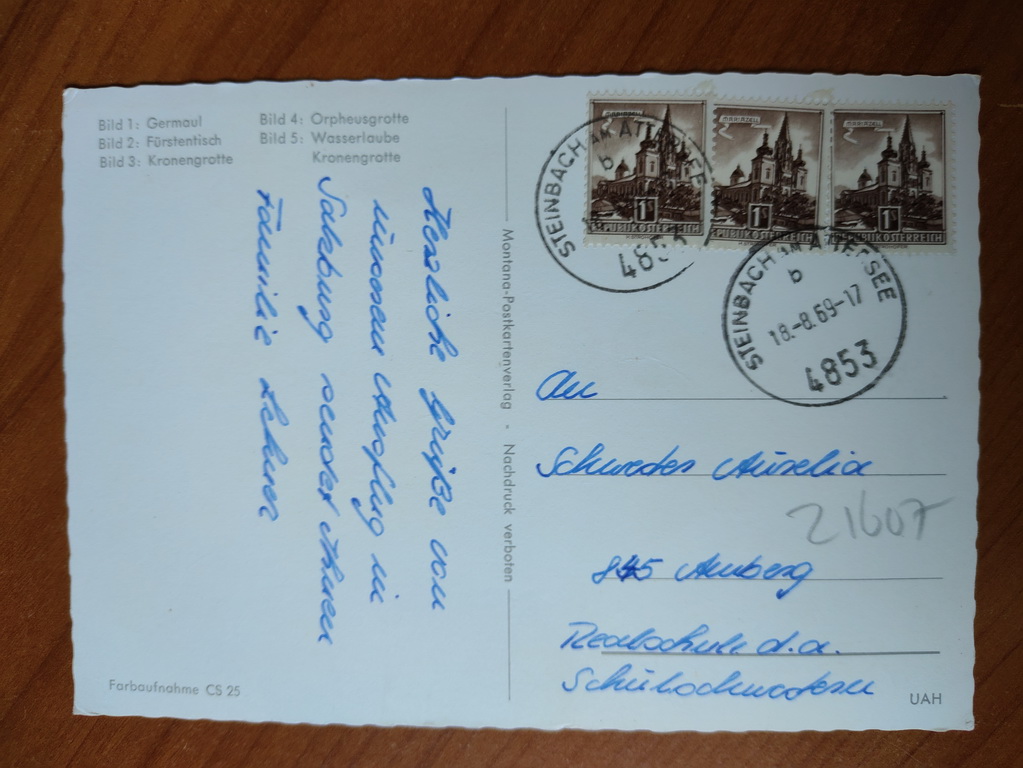 Bild 1: Germaul
Bild 2: Fürstentisch
Bild 3: Kronengrotte
Bild 4: Orpheusgrotte
Bild 5: Wasserlaube
Kronengrotte
Herzliche Grüße von
unserem Ausflug in
Salzburg sendet Ihnen
Familie Lehner
Farbaufnahme CS 25
Montana-Postkartenverlag - Nachdruck verboten
MARIAZELL
1S
REPUBLIK ÖSTERREICH
MARIAZELL
1S
REPUBLIK ÖSTERREICH
MARIAZELL
1S
REPUBLIK ÖSTERREICH
STEINBACH AM ATTERSEE
b
4853
STEINBACH AM ATTERSEE
b
18.-8.69-17
4853
An
Schwester Aurelia
21607
845 Amberg
Realschule d. a.
Schulschwestern
UAH